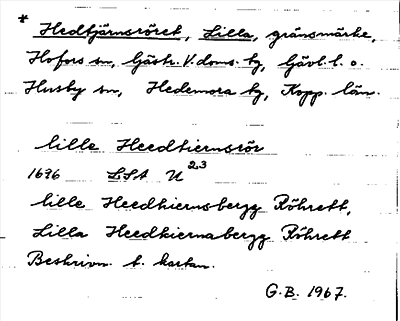 * Hedtjärnsröret, Lilla, gränsmärke,
Hofors sn, Gästr. V. doms. tg, Gävl. l. o.
Husby sn, Hedemora tg, Kopp. län.
lille Heedtiernsrör
1696 LSA U 23
lille Heedkiernsbergz Röhrett,
Lilla Heedkiernabergz Röhrett
Beskrivn. t. kartan.
G.B. 1967.